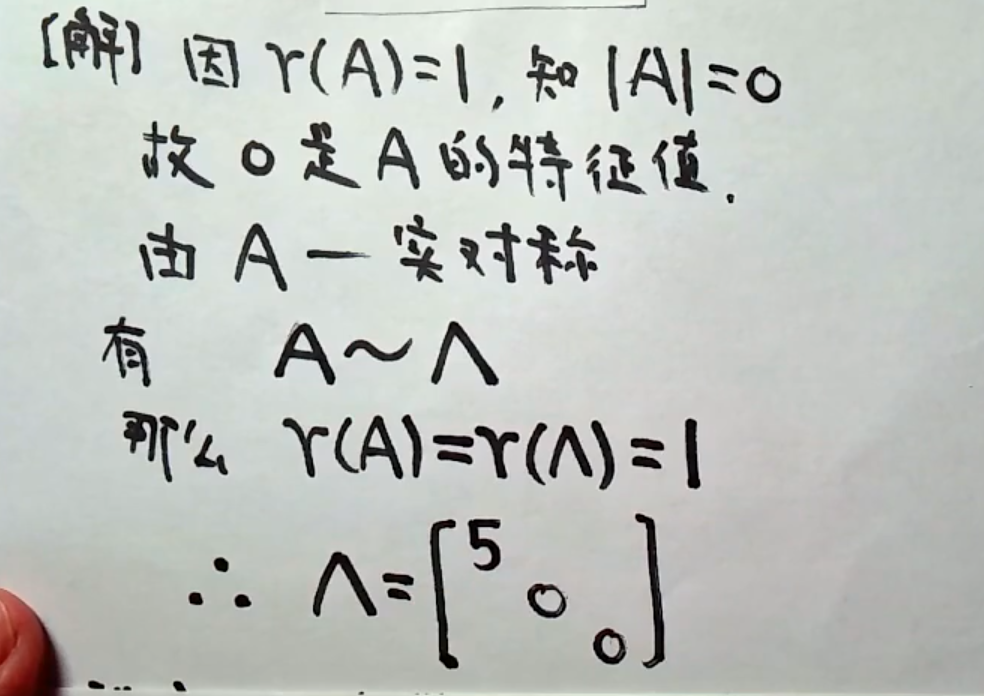 [解] 因 r(A)=1, 知 |A|=0
故 0 是 A 的特征值.
由 A — 实对称
有 A∼Λ
那么 r(A)=r(Λ)=1
∴ Λ=[5 0 0]